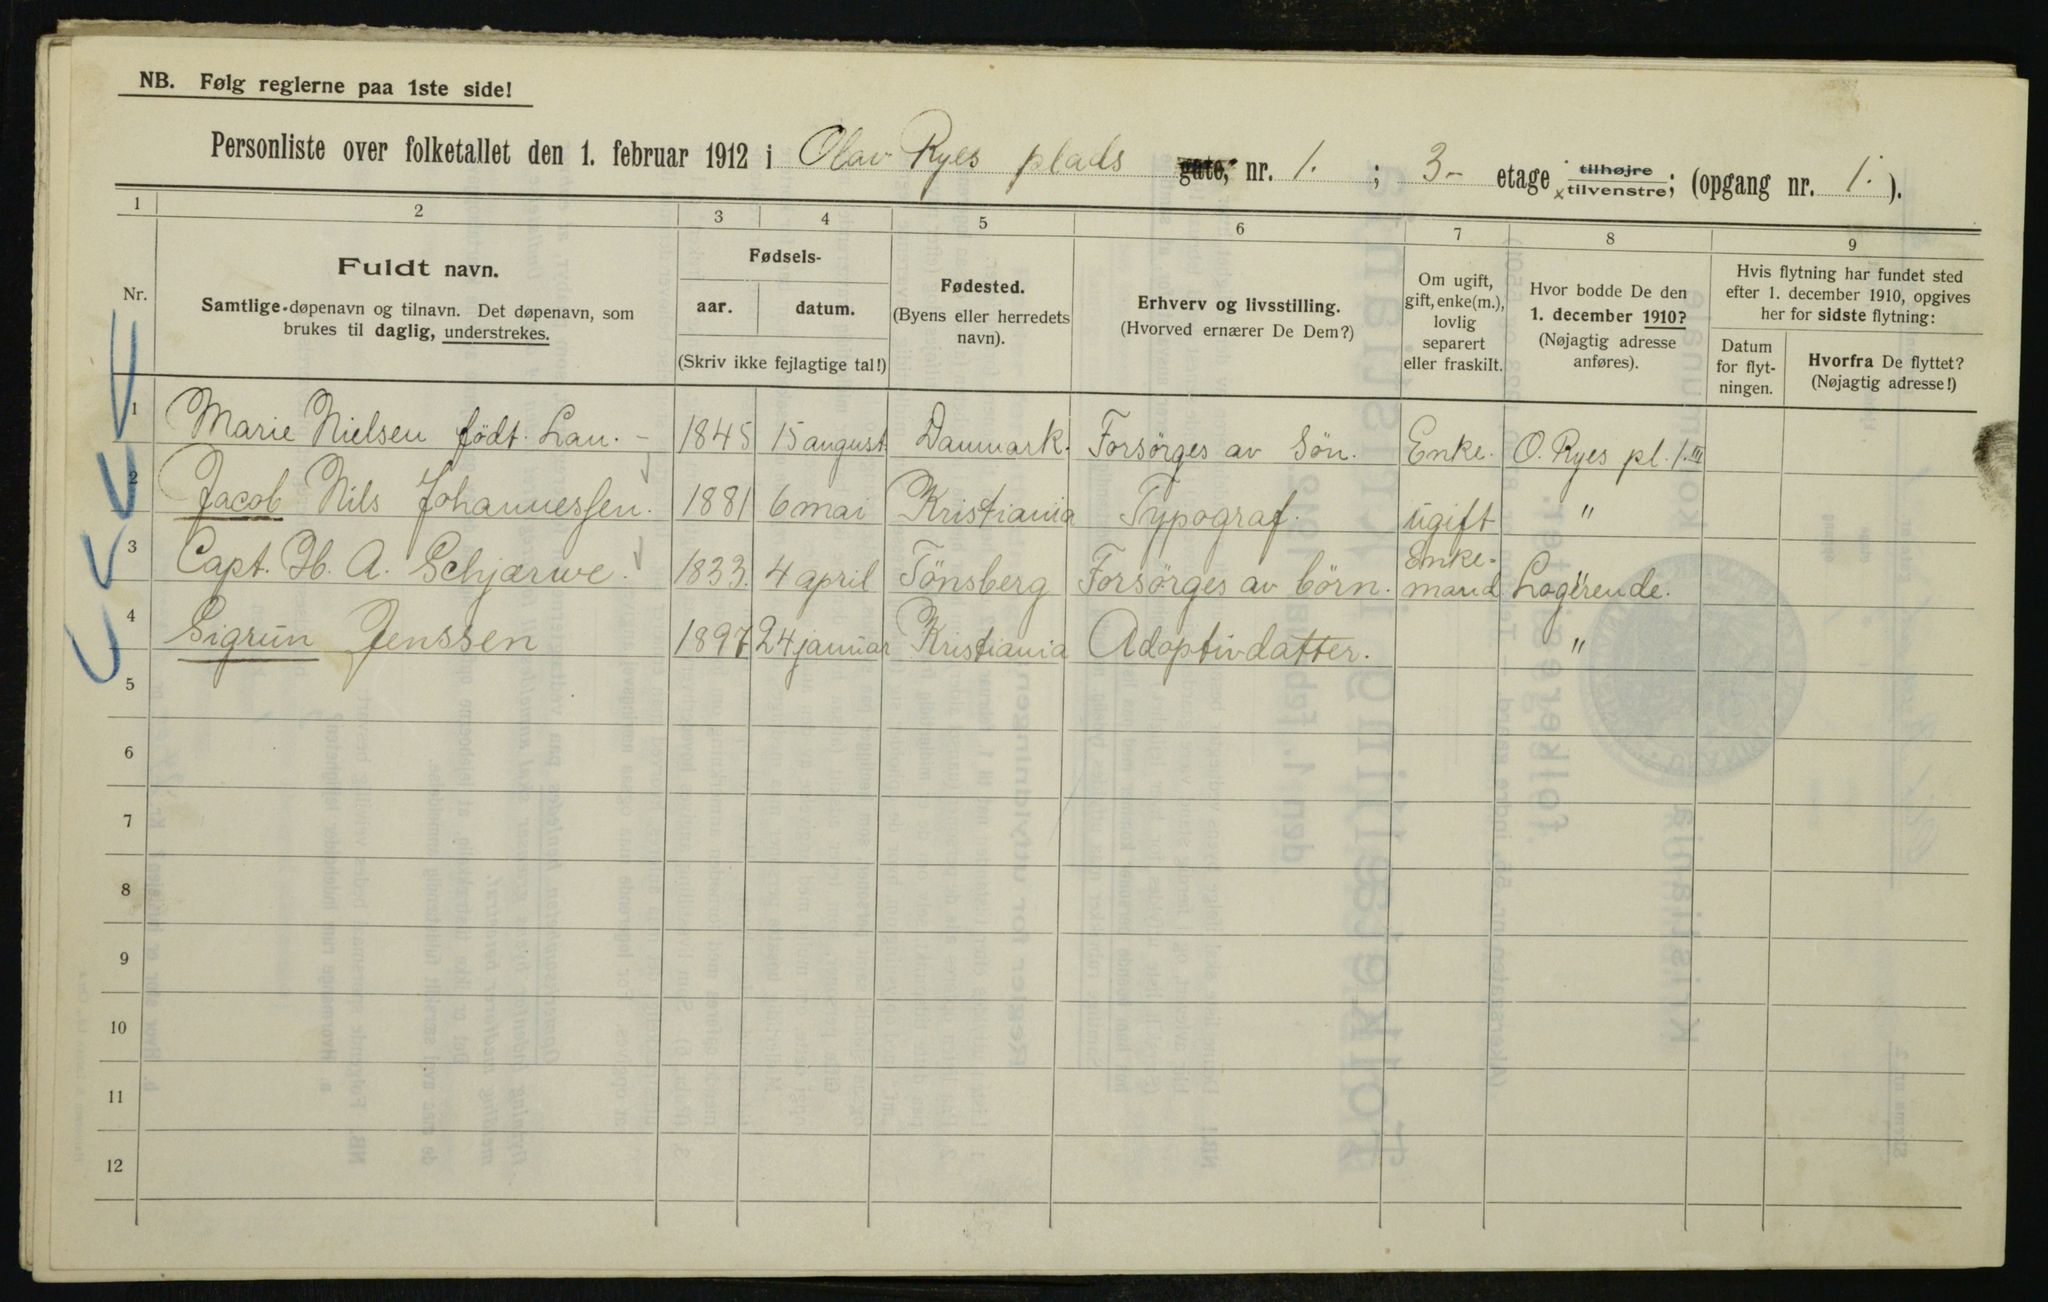 NB. Følg reglerne paa 1ste side!
Personliste over folketallet den 1. februar 1912 i Olav Ryes plads gate, nr. 1. ; 3- etage tilhøjre tilvenstre; (opgang nr. 1. ).
1 2 3 4 5 6 7 8 9
Nr.
Fuldt navn.
Samtlige døpenavn og tilnavn. Det døpenavn, som
brukes til daglig, understrekes.
Fødsels-
aar. datum.
(Skriv ikke fejlagtige tal!)
Fødested.
(Byens eller herredets
navn).
Erhverv og livsstilling.
(Hvorved ernærer De Dem?)
Om ugift,
gift, enke(m.),
lovlig
separert
eller fraskilt.
Hvor bodde De den
1. december 1910?
(Nøjagtig adresse
anføres).
Hvis flytning har fundet sted
efter 1. december 1910, opgives
her for sidste flytning:
Datum
for flyt-
ningen.
Hvorfra De flyttet?
(Nøjagtig adresse!)
1 Marie Nielsen født. Lau. - 1845 15 august Danmark. Forsörges av Sön. Enke. O. Ryes pl. 1. III
2 Jacob Nils Johannessen. 1881 6 mai Kristiania Typograf. ugift "
3 Capt. H. A. Schjærwe. 1833. 4 april Tönsberg Forsörges av börn. Enke-
mand Logerende.
4 Sigrun Jenssen 1897 24 januar Kristiania Adoptivdatter. "
5
6
7
8
9
10
11
12